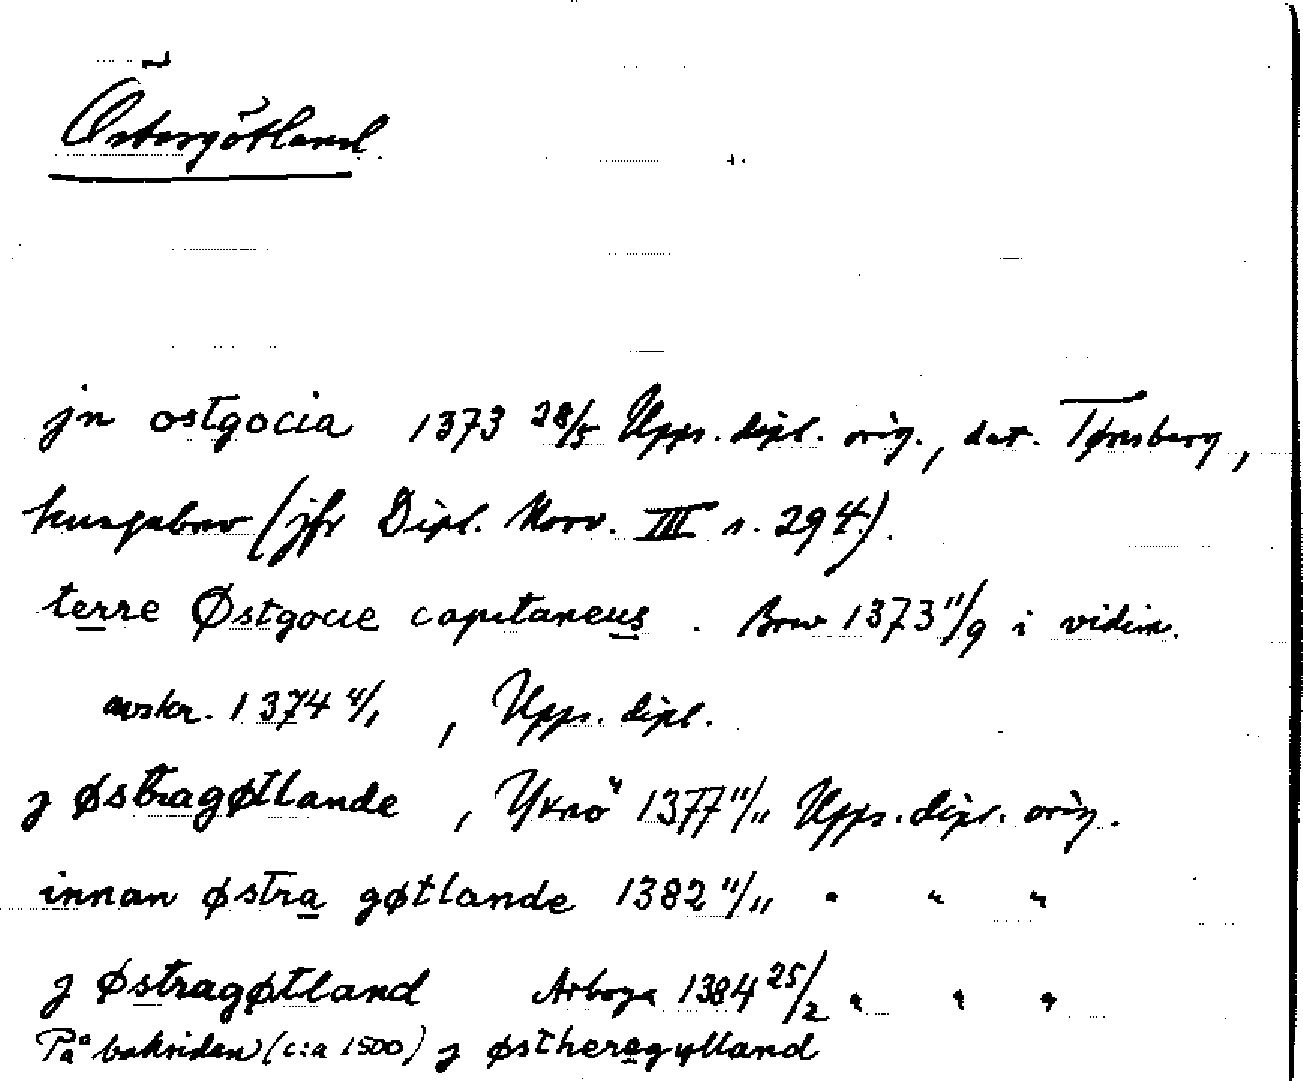 Östergötland.
jn ostgocia 1373 28/5 Upps. dipl. orig., dat. Tønsberg,
kungabrev (jfr Dipl. Norv. III s. 294).
terre Østgocie capitaneus . Brev 1373 11/9 i vidim.
avskr. 1374 11/1 , Upps. dipl.
j østragøtlande , Yknö 1377 11/11 Upps. dipl. orig.
innan østra gøtlande 1382 11/11 " " "
j østragøtland Arboga 1384 25/2 " " "
På baksidan (c:a 1500) j østheragylland